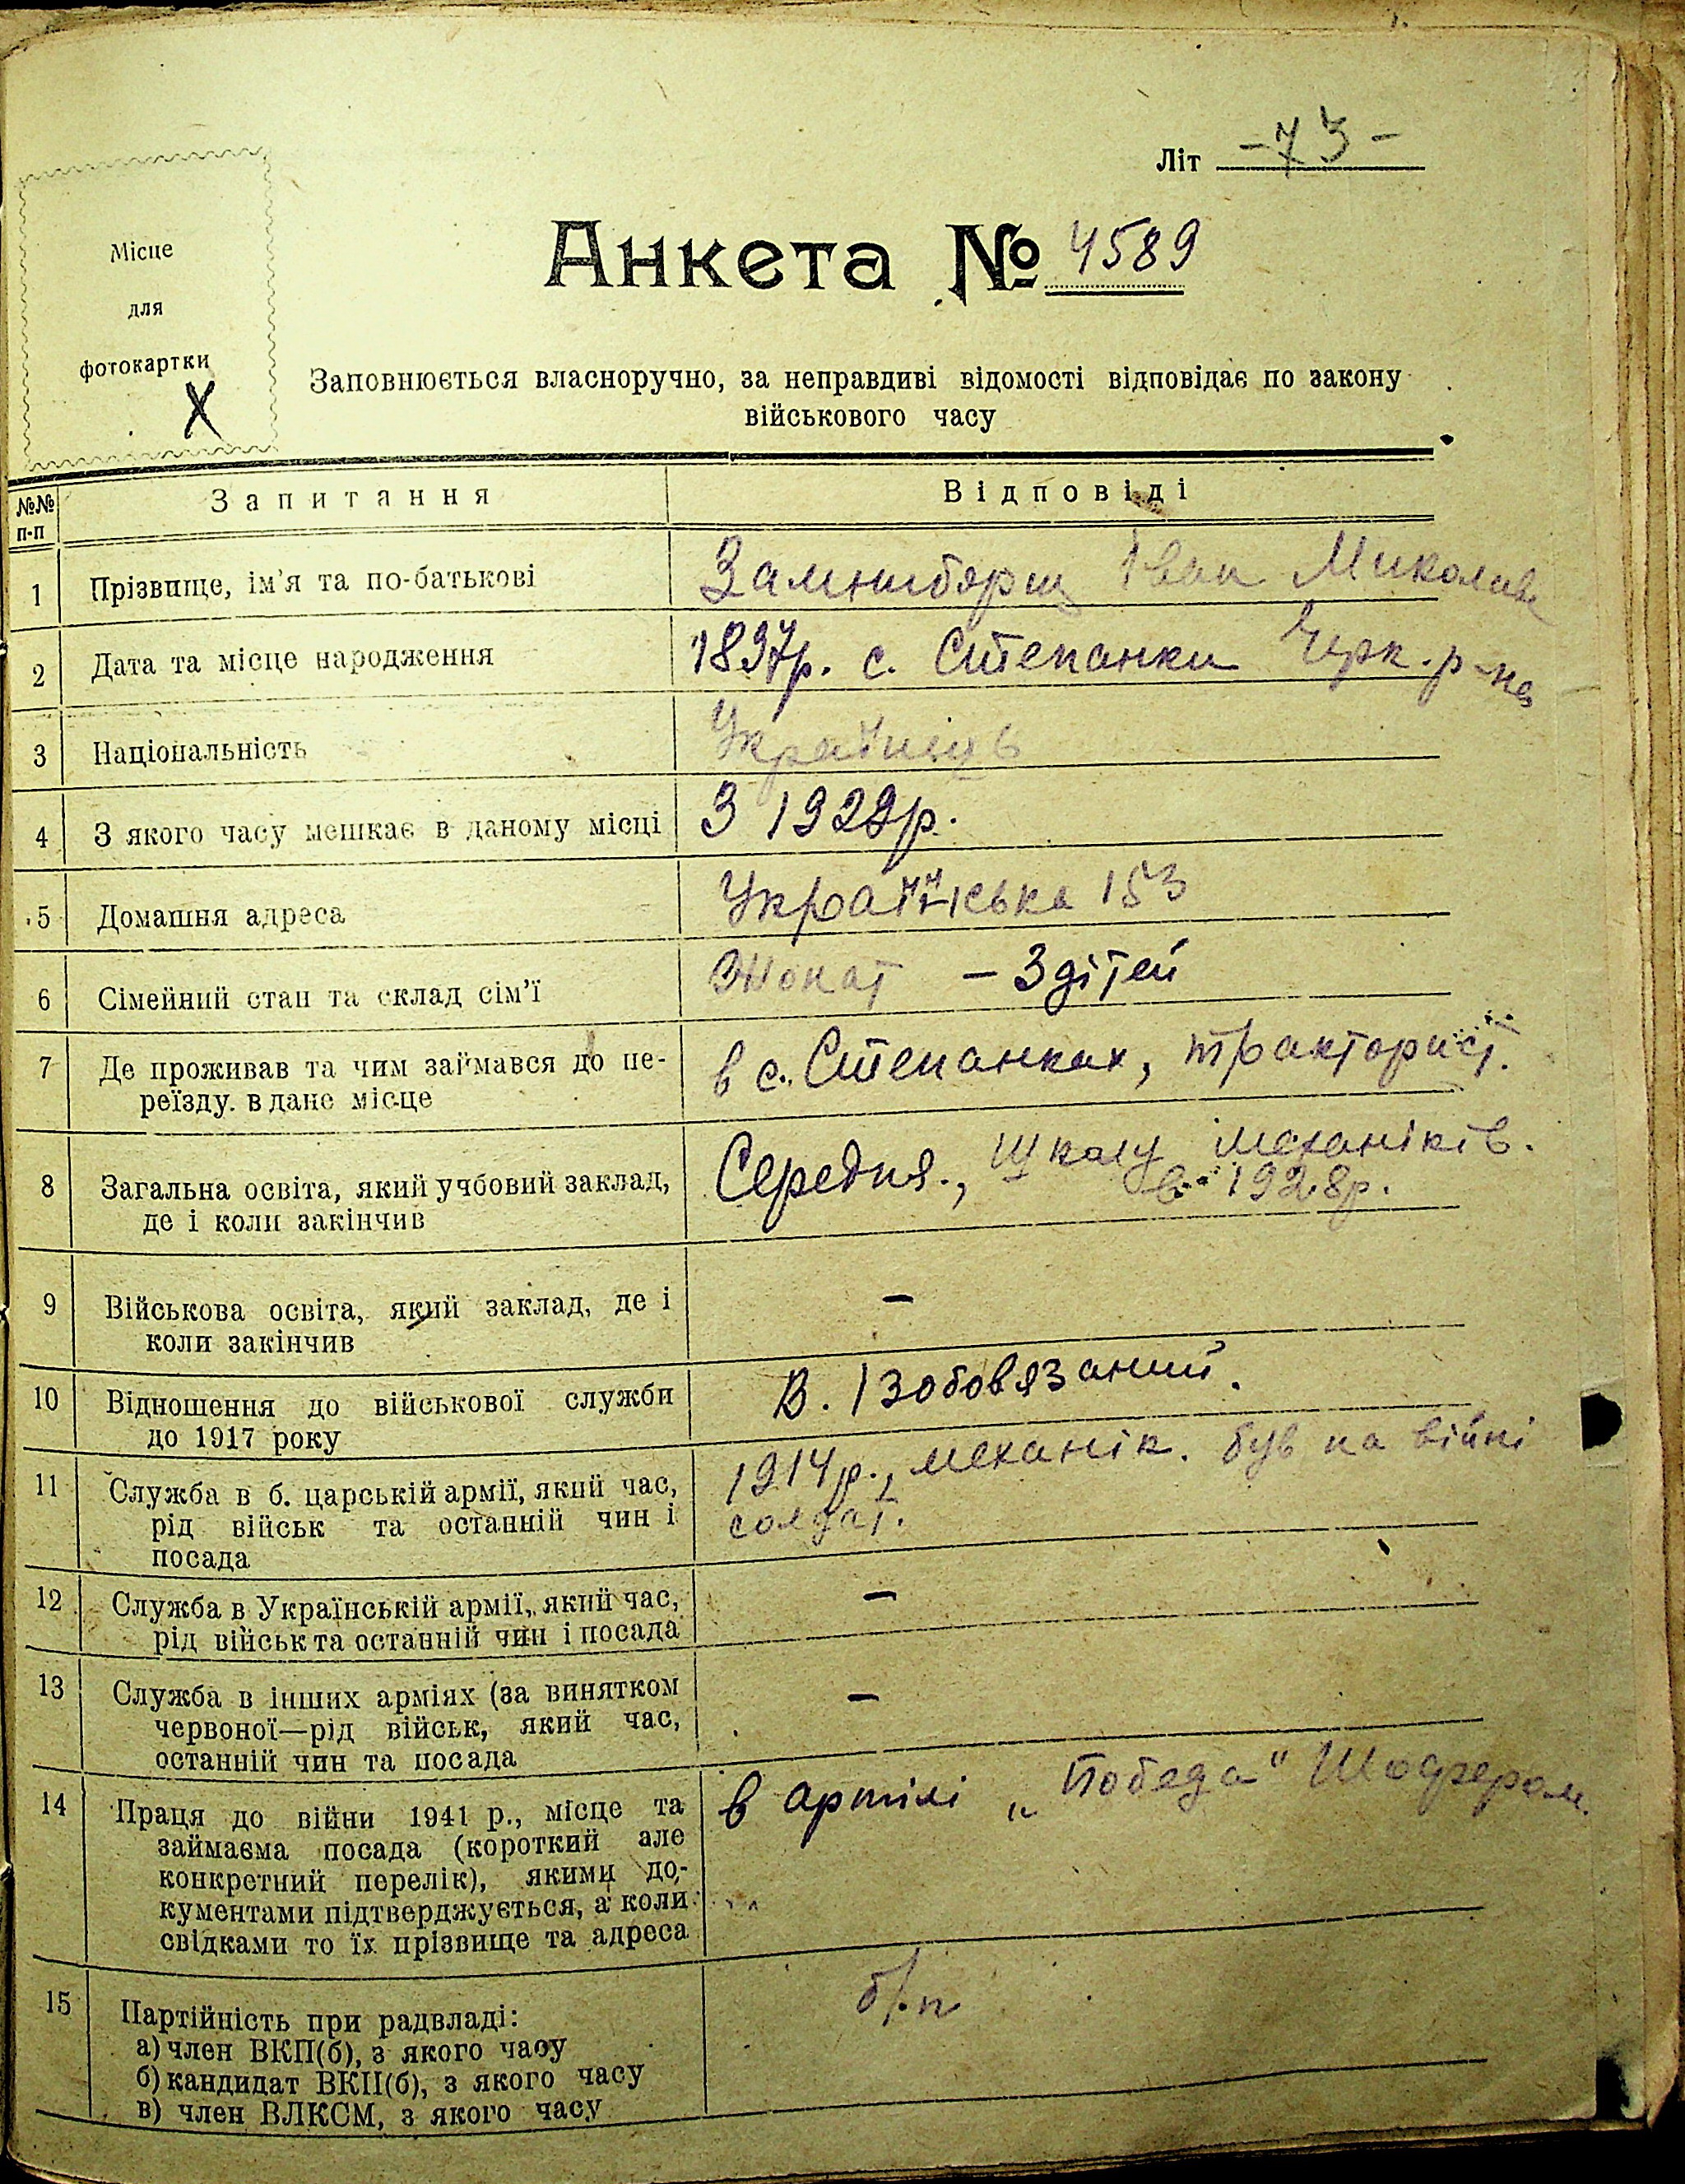 Літ -73-
Місце
для
фотокартки
Х
Анкета № 4589
Заповнюється власноручно, за неправдиві відомості відповідає по закону
військового часу
№№ п-п Запитання Відповіді
1 Прізвище, ім'я та по-батькові Іван Микол
2 Дата та місце народження 1897р. с. Степанки Черк. р-на
3 Національність Українець
4 З якого часу мешкає в даному місці З 1929р.
5 Домашня адреса Українська 153
6 Сімейний стан та склад сім'ї Жонат – 3 дітей
7 Де проживав та чим займався до пе- в с. Степанках, тракторист.
реїзду в дане місце
8 Загальна освіта, який учбовий заклад, Середня., школу механіків.
де і коли закінчив в 1928р.
9 Військова освіта, який заклад, де і –
коли закінчив
10 Відношення до військової служби В. Ізобовязаний.
до 1917 року
11 Служба в б. царській армії, який час, 1914р., механік. був на війні
рід військ та останній чин і солдат.
посада
12 Служба в Українській армії, який час, –
рід військ та останній чин і посада
13 Служба в інших арміях (за винятком –
червоної—рід військ, який час,
останній чин та посада
14 Праця до війни 1941 р., місце та в артілі „Победа" Шофером.
займаєма посада (короткий але
конкретний перелік), якими до-
кументами підтверджується, а коли
свідками то їх прізвище та адреса
15 Партійність при радвладі: б/п
а) член ВКП(б), з якого часу
б) кандидат ВКП(б), з якого часу
в) член ВЛКСМ, з якого часу